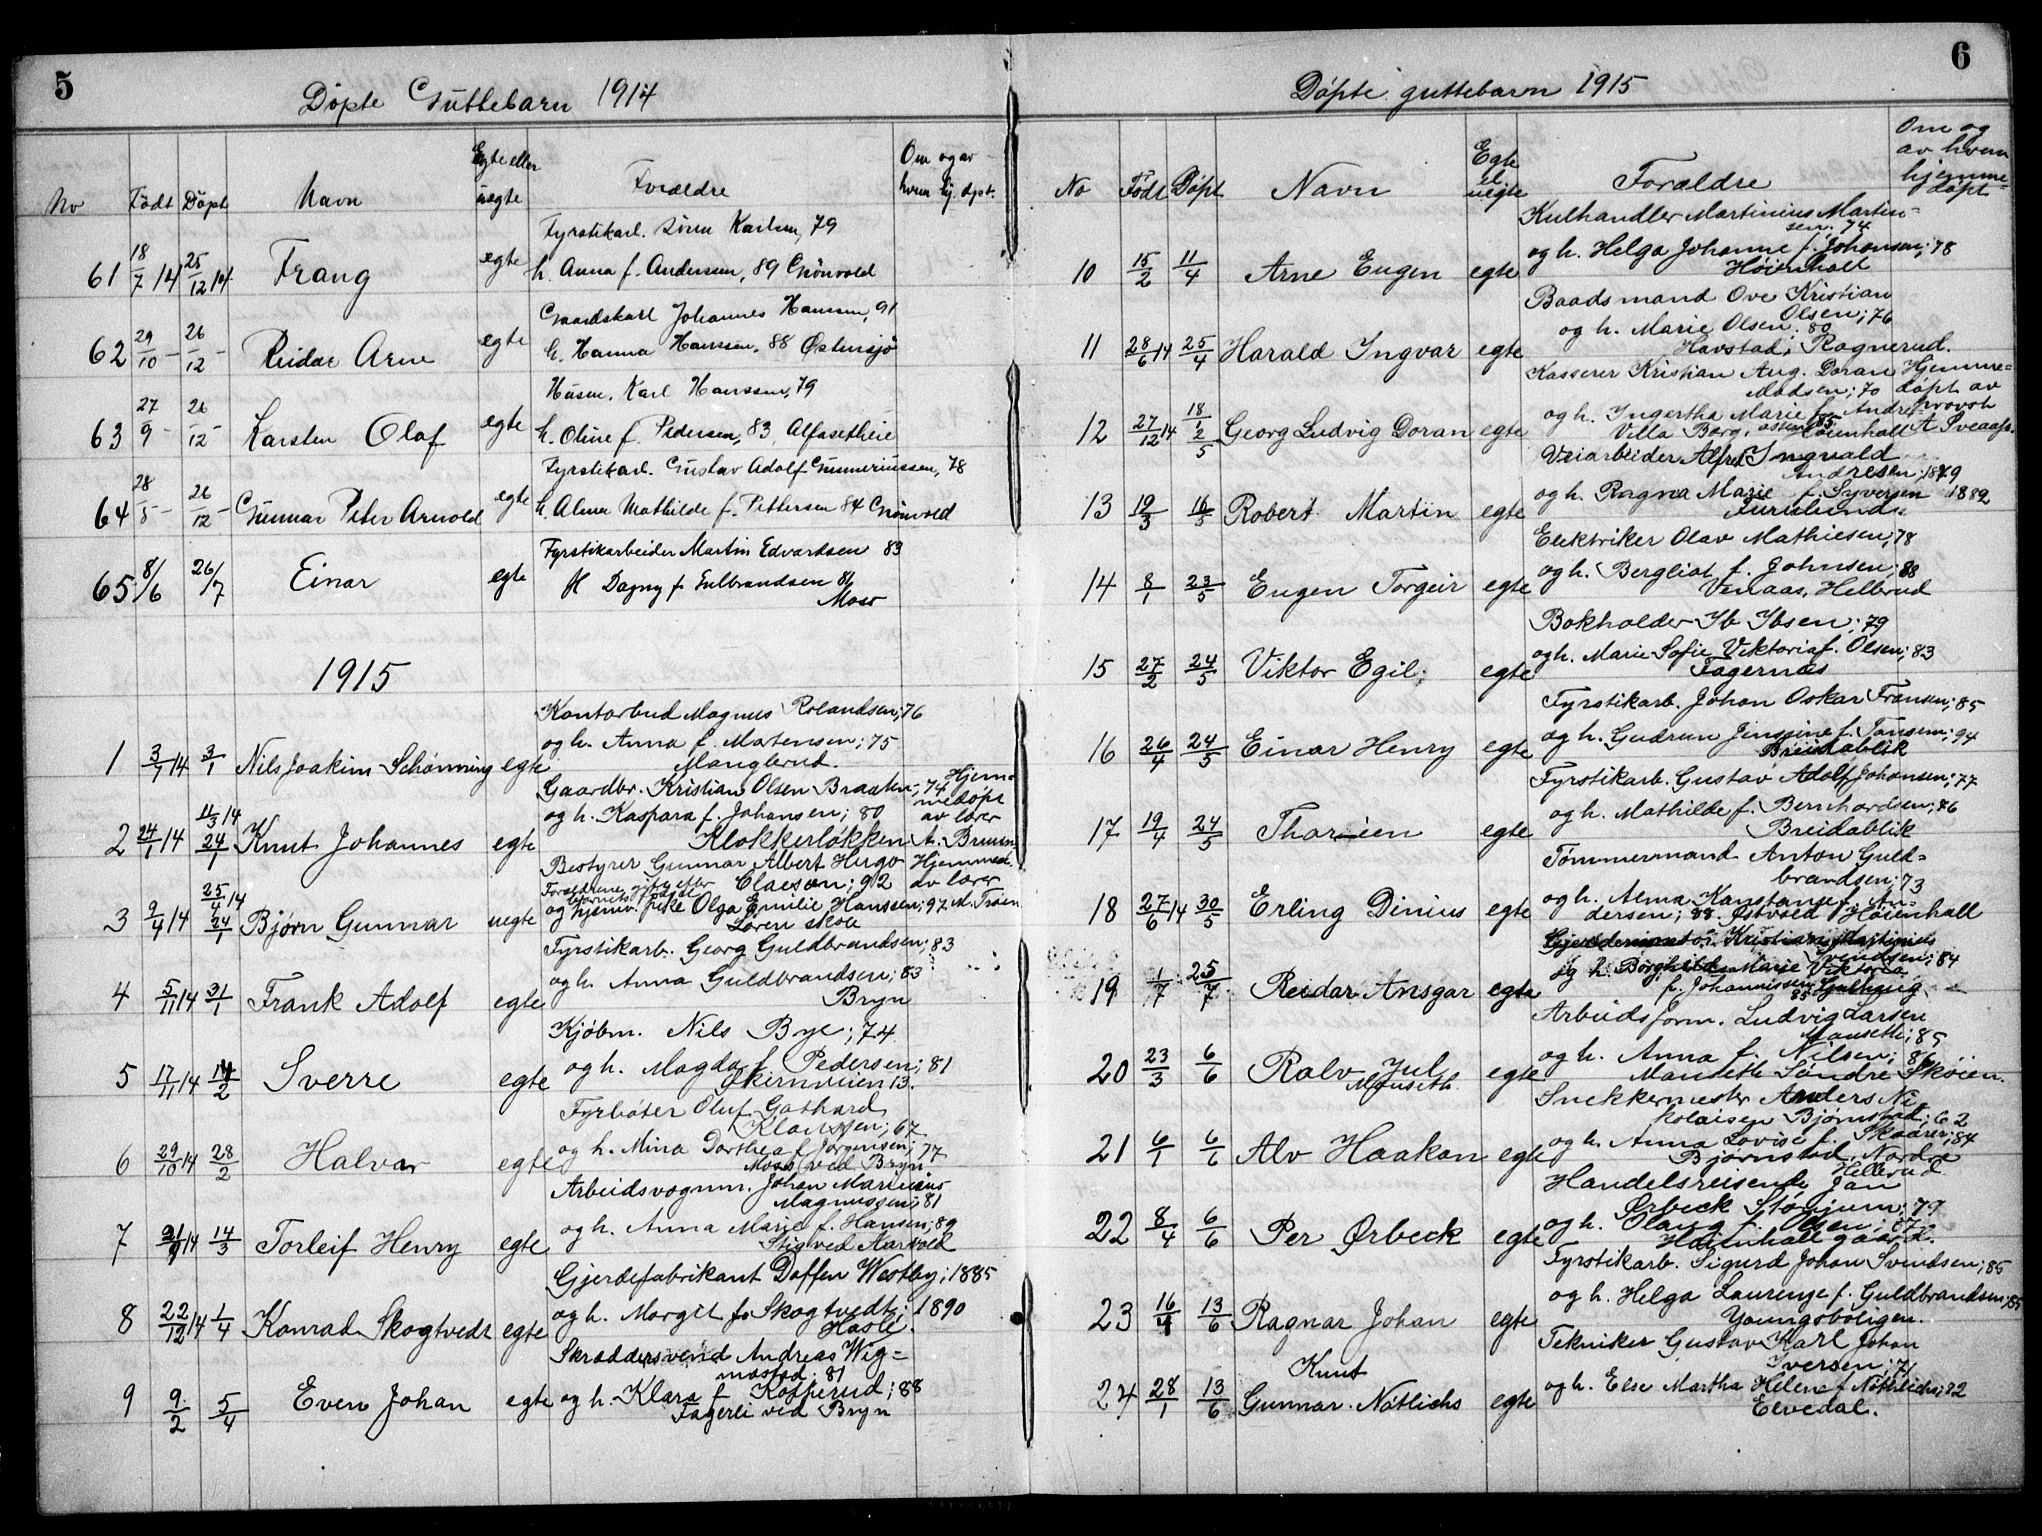 5
Døpte Guttebarn 1914
No Født Døpt Navn Egte eller uegte Forældre Om og av hvem hj. døpt.
Fyrstikarb. Søren Karlsen, 79
61 18/7 14 25/12 14 Frang egte h. Anna f. Andersen, 89 Grönvold
Gaardskarl Johannes Hanssen, 91
62 29/10 - 26/12 - Reidar Arne egte h. Hanna Hanssen, 88 Østensjö
Husm. Karl Hanssen, 79
63 27/9 - 26/12 - Karsten Olaf egte h. Oline f. Pedersen, 83, Alfasetheie
Fyrstikarb. Gustav Adolf Gunneriussen, 78
64 28/8 - 26/12 - Gunnar Peter Arnold egte h. Alma Mathilde f. Pettersen 84 Grönvold
Fyrstikarbeider Martin Edvardsen 83
65 8/6 26/7 Einar egte H Dagny f Gulbrandsen 86
Moss
1915
Kontorbud Magnus Rolandsen; 76
og h. Anna f. Martensen; 75
1 3/1 14 3/1 Nils Joakim Schønning egte Manglerud.
Gaardbr. Kristian Olsen Braaten; 74 Hjem-
11/3 14 og h. Kaspara f. Johansen; 80 medøpt av lærer
2 24/1 14 24/1 Knut Johannes egte Klokkerløkken A. Bruun
Bestyrer Gunnar Albert Hugo Hjemmed.
25/4 14 Forældrene gift efter barnets fødsel Claeson; 92 av lærer
3 9/4 14 24/1 Bjørn Gunnar uegte og hjemv. pike Olga Emilie Hanssen; 97 M. Trøen
Løren skole
Fyrstikarb. Georg Guldbrandsen; 83
og h. Anna Guldbrandsen; 83
4 5/11 14 31/1 Frank Adolf egte Bryn
Kjøbm. Nils Bye; 74
og h. Magda f. Pedersen; 81
5 17/11 14 14/2 Sverre egte Skernveien 13.
Fyrbøter Oluf Gothard
Klausen; 67
og h. Mina Dorthea f. Jørgensen; 77
6 29/10 14 28/2 Halvar egte Moss ved Bryn
Arbeidsvognm. Johan Marinius
Magnussen; 81
og h. Anna Marie f. Hansen; 89
7 21/9 14 14/3 Torleif Henry egte Stig ved Aarvold
Gjerdefabrikant Doffen Westby; 1885
og h. Margit f. Skogtvedt; 1890
8 22/12 14 1/4 Konrad Skogtvedt egte Hasle.
Skræddersvend Andreas Wig-
mostad; 81
9 9/2 5/4 Even Johan egte og h. Klara f. Kopperud; 88
Fagerli ved Bryn
6
Døpte guttebarn 1915
No Født Døpt Navn Egte el uegte Forældre Om og av hvem hjemme-døpt
Kulhandler Martinius Martin-
sen. 74
og h. Helga Johanne f. Johansen; 78
10 15/2 11/4 Arne Eugen egte Høienhall
Baadsmand Ove Kristian
Olsen; 76
og h. Marie Olsen; 80
11 28/6 14 25/4 Harald Ingvar egte Havstad, Rognerud.
Kasserer Kristian Aug. Doran Hjemme-
Madsen; 70 døpt av
og h. Ingertha Marie f. Andre- provst
12 27/12 14 18/1 2/5 Georg Ludvig Doran egte Villa Borg, assen 85 Høienhall A Sveaas.
Veiarbeider Alfred Ingvald
Andresen; 1879
og h. Ragna Marie f. Syversen 1882
13 19/3 16/5 Robert Martin egte Furulund.
Elektriker Olav Mathiesen; 78
og h. Bergliot f. Johnsen; 88
14 8/1 23/5 Eugen Torgeir egte Venaas, Hellerud
Bokholder Ib Ibsen; 79
og h. Marie Sofie Viktoria f. Olsen; 83
15 27/2 24/5 Viktor Egil egte Fagernæs
Fyrstikarb. Johan Oskar Fransen; 85
og h. Gudrun Jensine f. Tansem; 94
16 26/4 24/5 Einar Henry egte Breidablik
Fyrstikarb. Gustav Adolf Johansen; 77
og h. Mathilde f. Bernhardsen; 76
17 19/4 24/5 Thorien egte Breidablik
Tømmermand Anton Guld-
brandsen; 73
og h. Alma Konstanse f. An-
18 27/6 14 30/5 Erling Dinius egte dersen; 88. Østvold Høienhall
Gjerdemontør Kristian Martinius
Svendsen; 84
og h. Borghild Marie Viktoria
19 1/7 25/7 Reidar Ansgar egte f. Johannissen 85 Gulhaug
Arbeidsform. Ludvig Larsen
Mauseth; 85
og h. Anna f. Nilsen; 86
20 23/3 6/6 Ralv Jul Mauseth egte Mauseth Søndre Skøien.
Snekkermester Anders Ni-
kolaisen Bjørnstad; 62
og h. Anna Lovise f. Skaarer; 84
21 6/1 6/6 Alv Haakon egte Bjørnstad, Nordre
Hellerud
Handelsreisende Jan
Ørbeck Stönjum; 79
og h. Olaug f. Olsen; 87
22 8/4 6/6 Per Ørbeck egte Høienhall gaard.
Fyrstikarb. Sigurd Johan Svendsen; 85
og h. Helga Laurenze f. Guldbrandsen; 85
23 16/4 13/6 Ragnar Johan egte Youngsboligen.
Tekniker Gustav Karl Johan
Iversen; 71
Knut og h. Else Martha Helene f. Nötlichs; 82
24 28/1 13/6 Gunnar Nötlichs egte Elvedal.